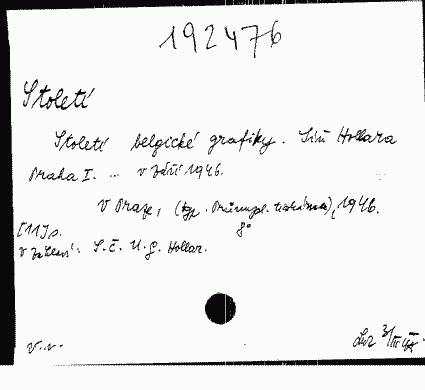 192476
Století
Století belgické grafiky. Síň Hollara
Praha I. ... v září 1946.
V Praze, (typ. Průmysl. tiskárna), 1946.
[11] s. 8°
V záhlaví: S. Č. U. G. Hollar.
V.-v.-